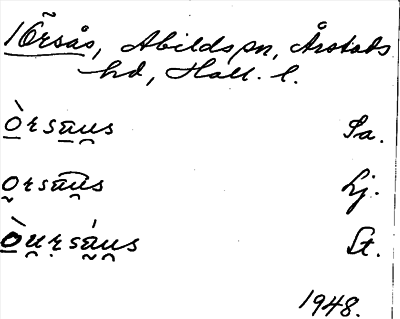 Örsås, Abilds sn, Årstads
hd, Hall. l.
òrsāus Sa.
orsāus Lj.
òursáus St.
1948.